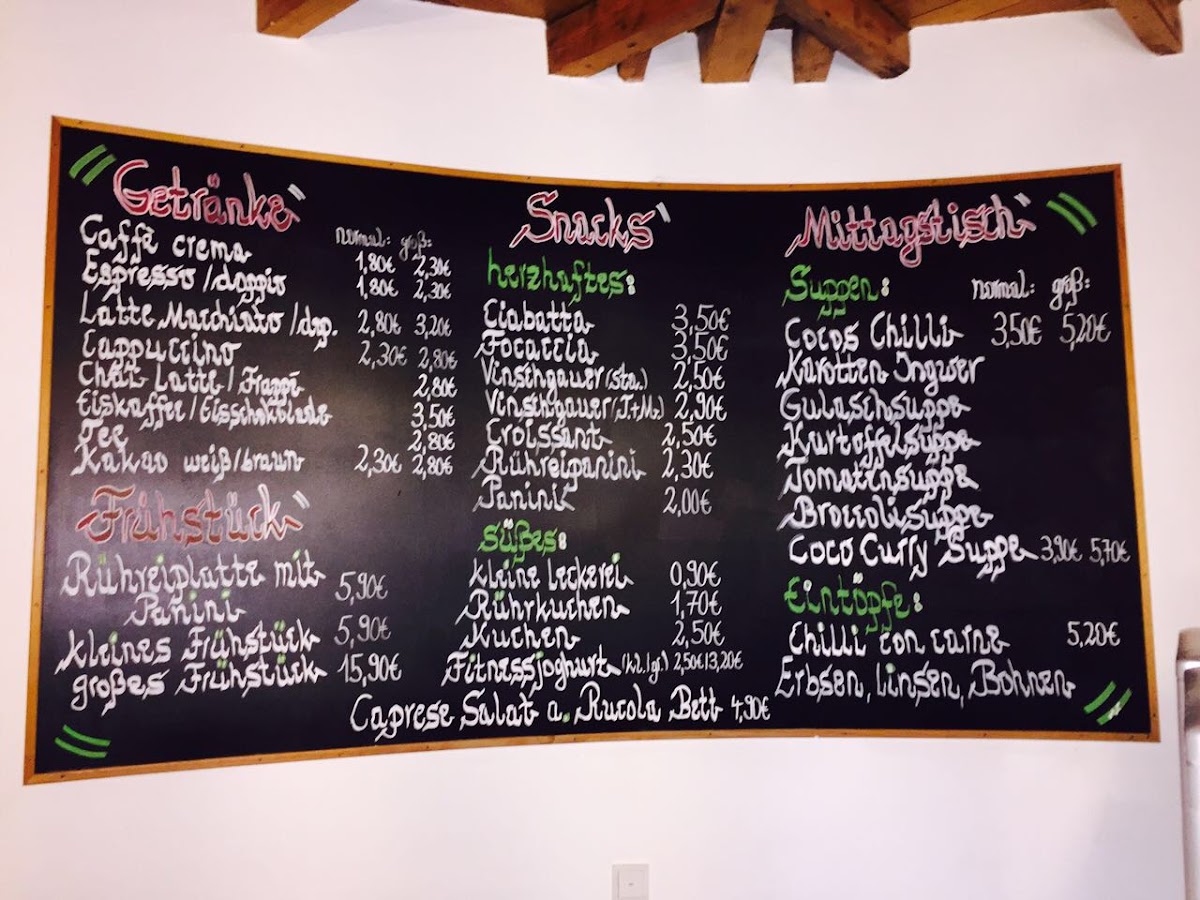 Getränke
normal: groß:
Caffè crema 1,80€ 2,30€
Espresso/doppio 1,80€ 2,30€
Latte Macchiato/dop. 2,80€ 3,20€
Cappuccino 2,30€ 2,80€
Chai Latte/Frappé 2,80€
Eiskaffee/Eisschokolade 3,50€
Tee 2,80€
Kakao weiß/braun 2,30€ 2,80€
Frühstück
Rühreiplatte mit
Panini 5,90€
kleines Frühstück 5,90€
großes Frühstück 15,90€
Snacks
herzhaftes:
Ciabatta 3,50€
Focaccia 3,50€
Vinschgauer (sta.) 2,50€
Vinschgauer (T.+M.) 2,90€
Croissant 2,50€
Rühreipanini 2,30€
Panini 2,00€
süßes:
kleine leckerei 0,90€
Rührkuchen 1,70€
Kuchen 2,50€
Fitnessjoghurt (kl./gr.) 2,50€/3,20€
Caprese Salat a. Rucola Bett 4,90€
Mittagstisch
Suppen: normal: groß:
Cocos Chilli 3,50€ 5,20€
Karotten Ingwer
Gulaschsuppe
Kartoffelsuppe
Tomatensuppe
Broccolisuppe
Coco Curry Suppe 3,90€ 5,70€
Eintöpfe:
Chilli con carne 5,20€
Erbsen, Linsen, Bohnen